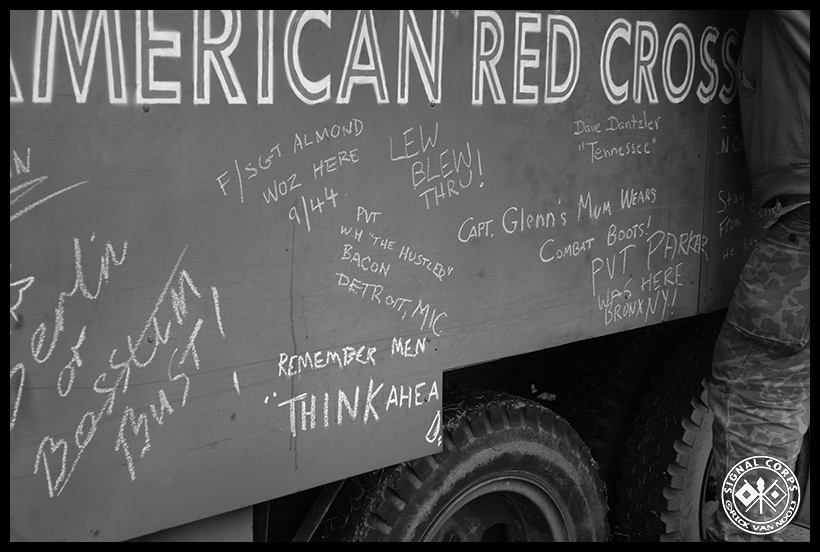 AMERICAN RED CROSS
F/SGT ALMOND
WOZ HERE
9/44
LEW
BLEW
THRU!
Dave Dantzler
"Tennessee"
PVT
WH "THE HUSTLER"
BACON
DETROIT, MIC
CAPT. Glenn's Mum Wears
COMBAT BOOTS!
PVT PARKER
WAS HERE
BRONX NY!
Stay
From
He
Berlin
or
Bosstum
BUST!
!
REMEMBER MEN
"THINK AHEA
D
SIGNAL CORPS
©RICK VAN NOOIJ